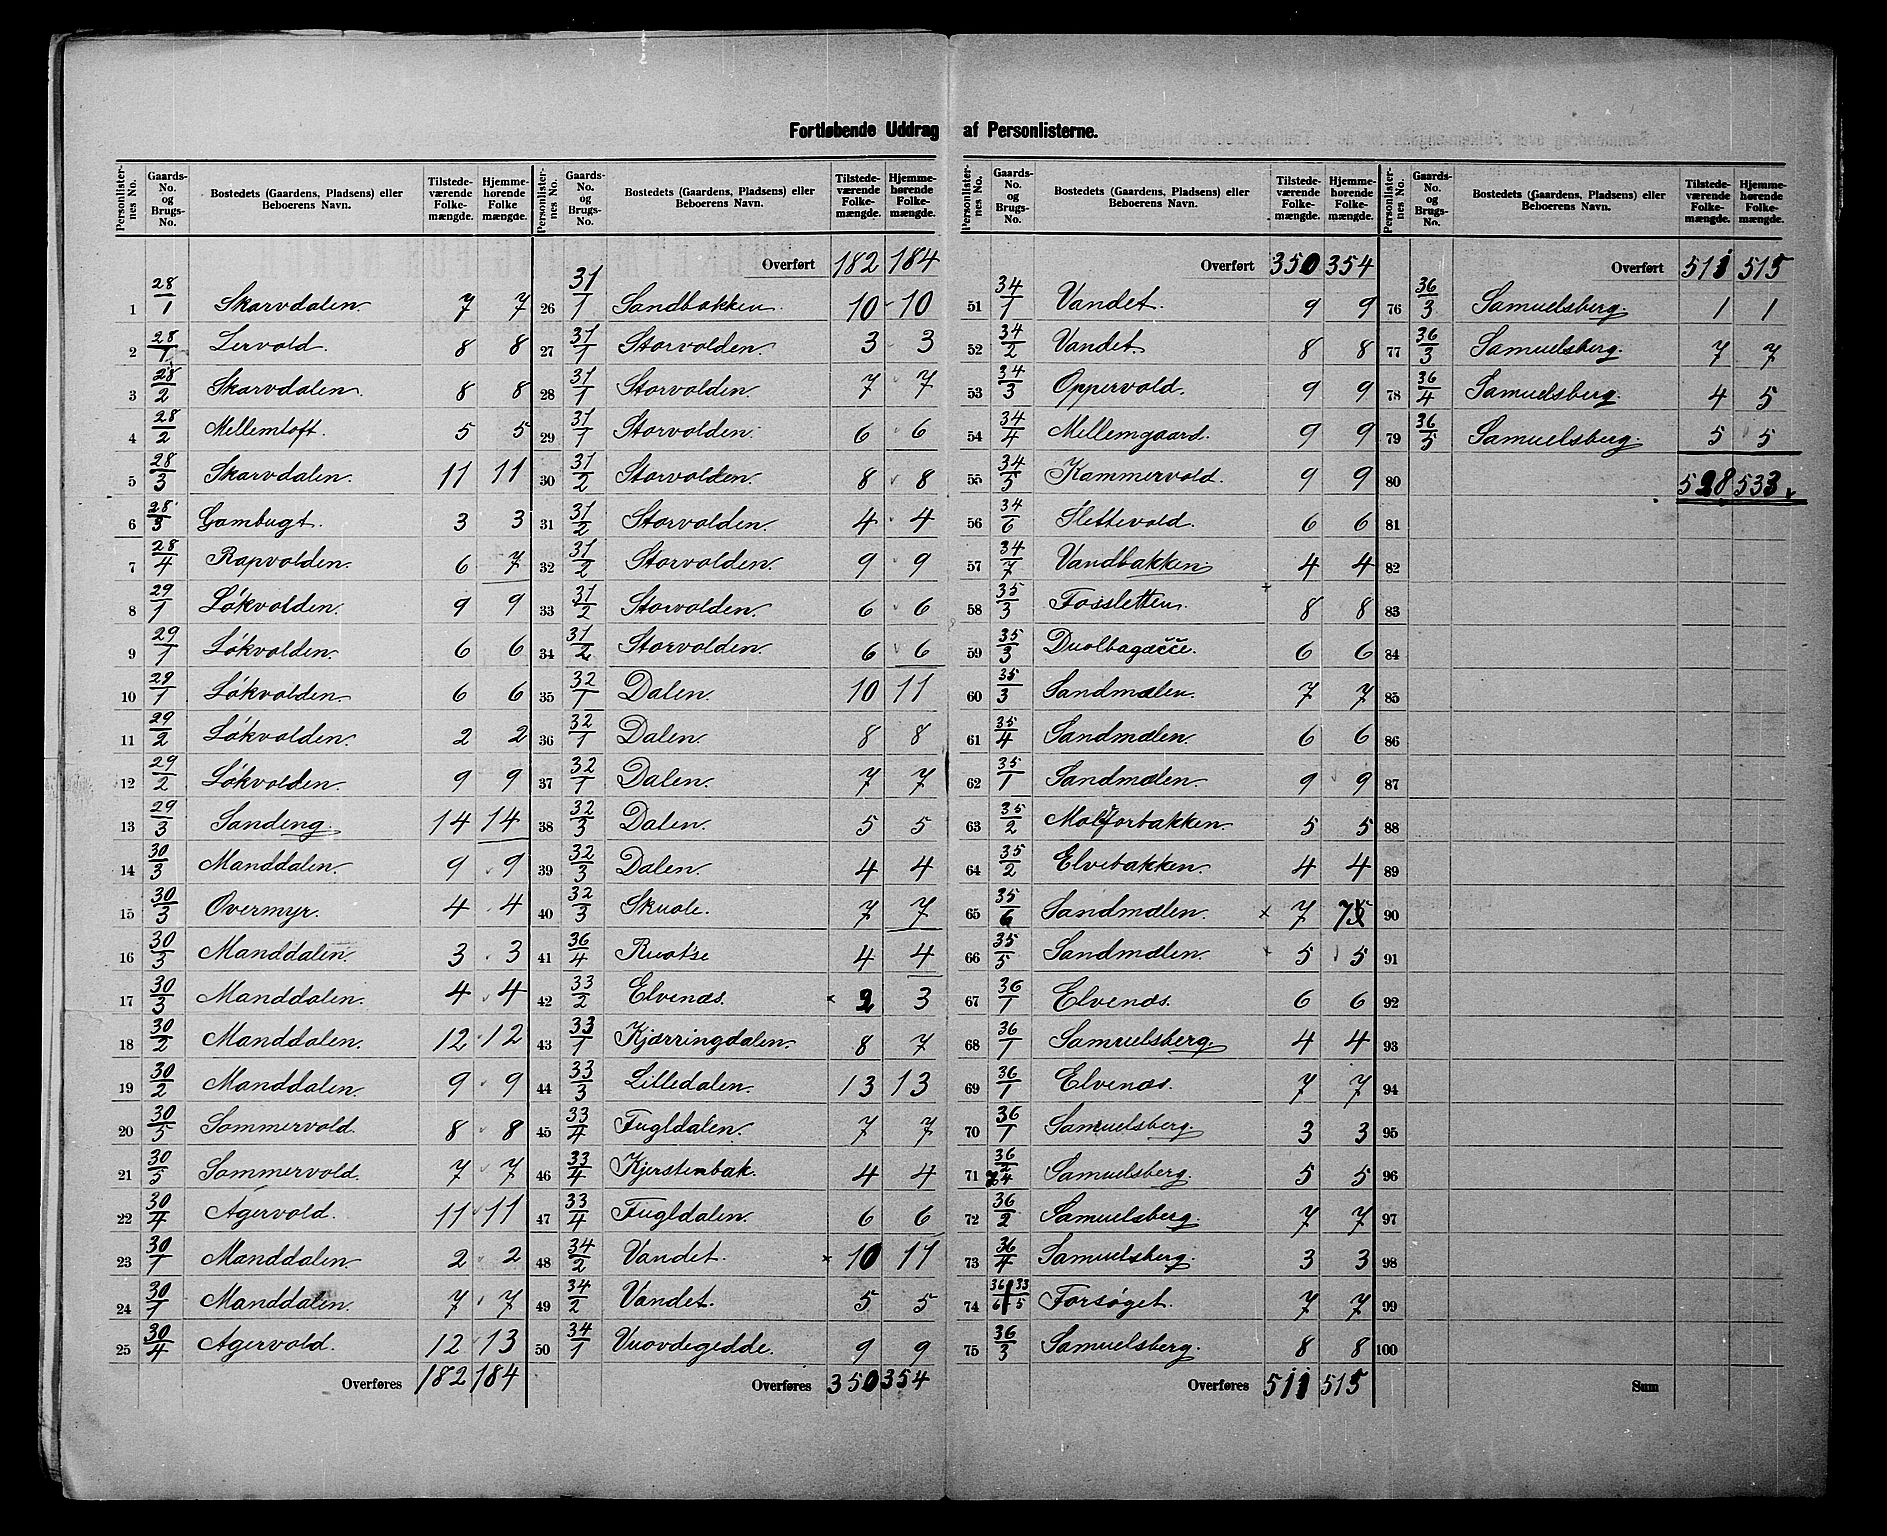 Fortløbende Uddrag af Personlisterne.
Personlister-nes No. | Gaards-No. og Brugs-No. | Bostedets (Gaardens, Pladsens) eller Beboerens Navn. | Tilstede-værende Folke-mængde. | Hjemme-hørende Folke mængde.
1 28/1 Skarvdalen 7 7
2 28/1 Lervold. 8 8
3 28/2 Skarvdalen. 8 8
4 28/2 Mellemtoft. 5 5
5 28/3 Skarvdalen. 11 11
6 28/3 Gambugt. 3 3
7 28/4 Rapvolden. 6 7
8 29/1 Løkvolden. 9 9
9 29/1 Løkvolden. 6 6
10 29/1 Løkvolden. 6 6
11 29/2 Løkvolden. 2 2
12 29/2 Løkvolden. 9 9
13 29/3 Sandeng. 14 14
14 30/3 Manddalen. 9 9
15 30/3 Overmyr. 4 4
16 30/3 Manddalen. 3 3
17 30/3 Manddalen. 4 4
18 30/2 Manddalen. 12 12
19 30/2 Manddalen. 9 9
20 30/5 Sommervold. 8 8
21 30/5 Sommervold. 7 7
22 30/4 Agervold. 11 11
23 30/1 Manddalen. 2 2
24 30/1 Manddalen. 7 7
25 30/4 Agervold. 12 13
Overføres 182 184
Personlister-nes No. | Gaards-No. og Brugs-No. | Bostedets (Gaardens, Pladsens) eller Beboerens Navn. | Tilstede-værende Folke-mængde. | Hjemme-hørende Folke-mængde.
Overført 182 184
26 31/1 Sandbakken 10 10
27 31/1 Storvolden. 3 3
28 31/1 Storvolden. 7 7
29 31/1 Storvolden. 6 6
30 31/2 Storvolden. 8 8
31 31/2 Storvolden. 4 4
32 31/2 Storvolden. 9 9
33 31/2 Storvolden. 6 6
34 31/2 Storvolden. 6 6
35 32/1 Dalen. 10 11
36 32/1 Dalen. 8 8
37 32/1 Dalen. 7 7
38 32/3 Dalen. 5 5
39 32/3 Dalen. 4 4
40 32/3 Skuole. 7 7
41 36/4 Ruotse 4 4
42 33/2 Elvenæs. × 2 3
43 33/1 Kjærringdalen. 8 7
44 33/3 Lilledalen. 13 13
45 33/4 Fugldalen. 7 7
46 33/4 Kjerstenbak. 4 4
47 33/4 Fugldalen. 6 6
48 34/2 Vandet. × 10 11
49 34/2 Vandet. 5 5
50 34/1 Vuovdegedde. 9 9
Overføres 350 354
Personlister-nes No. | Gaards-No. og Brugs-No. | Bostedets (Gaardens, Pladsens) eller Beboerens Navn. | Tilstede-værende Folke-mængde. | Hjemme-hørende Folke-mængde.
Overført 350 354
51 34/1 Vandet. 9 9
52 34/2 Vandet. 8 8
53 34/3 Oppervold. 9 9
54 34/4 Mellemgaard. 9 9
55 34/5 Kammervold. 9 9
56 34/6 Slettevold. 6 6
57 34/7 Vandbakken. 4 4
58 35/3 Fossletten. 8 8
59 35/3 Duolbagæčče. 6 6
60 35/3 Sandmælen. 7 7
61 35/4 Sandmælen. 6 6
62 35/1 Sandmælen. 9 9
63 35/2 5 5
64 35/2 Elvebakken. 4 4
65 35/6 Sandmælen. × 7 7
66 35/5 Sandmælen. 5 5
67 36/1 Elvenæs. 6 6
68 36/1 Samuelsberg. 4 4
69 36/1 Elvenæs. 7 7
70 36/1 Samuelsberg. 3 3
71 Samuelsberg. 5 5
72 36/2 Samuelsberg 7 7
73 36/4 Samuelsberg. 3 3
74 36/6 33/5 Forsøget. 7 7
75 36/3 Samuelsberg. 8 8
Overføres 511 515
Personlister-nes No. | Gaards-No. og Brugs-No. | Bostedets (Gaardens, Pladsens) eller Beboerens Navn. | Tilstede-værende Folke-mængde. | Hjemme-hørende Folke-mængde.
Overført 511 515
76 36/3 Samuelsberg. 1 1
77 36/3 Samuelsberg. 7 7
78 36/4 Samuelsberg. 4 5
79 36/5 Samuelsberg. 5 5
80 528 533
81
82
83
84
85
86
87
88
89
90
91
92
93
94
95
96
97
98
99
100
Sum